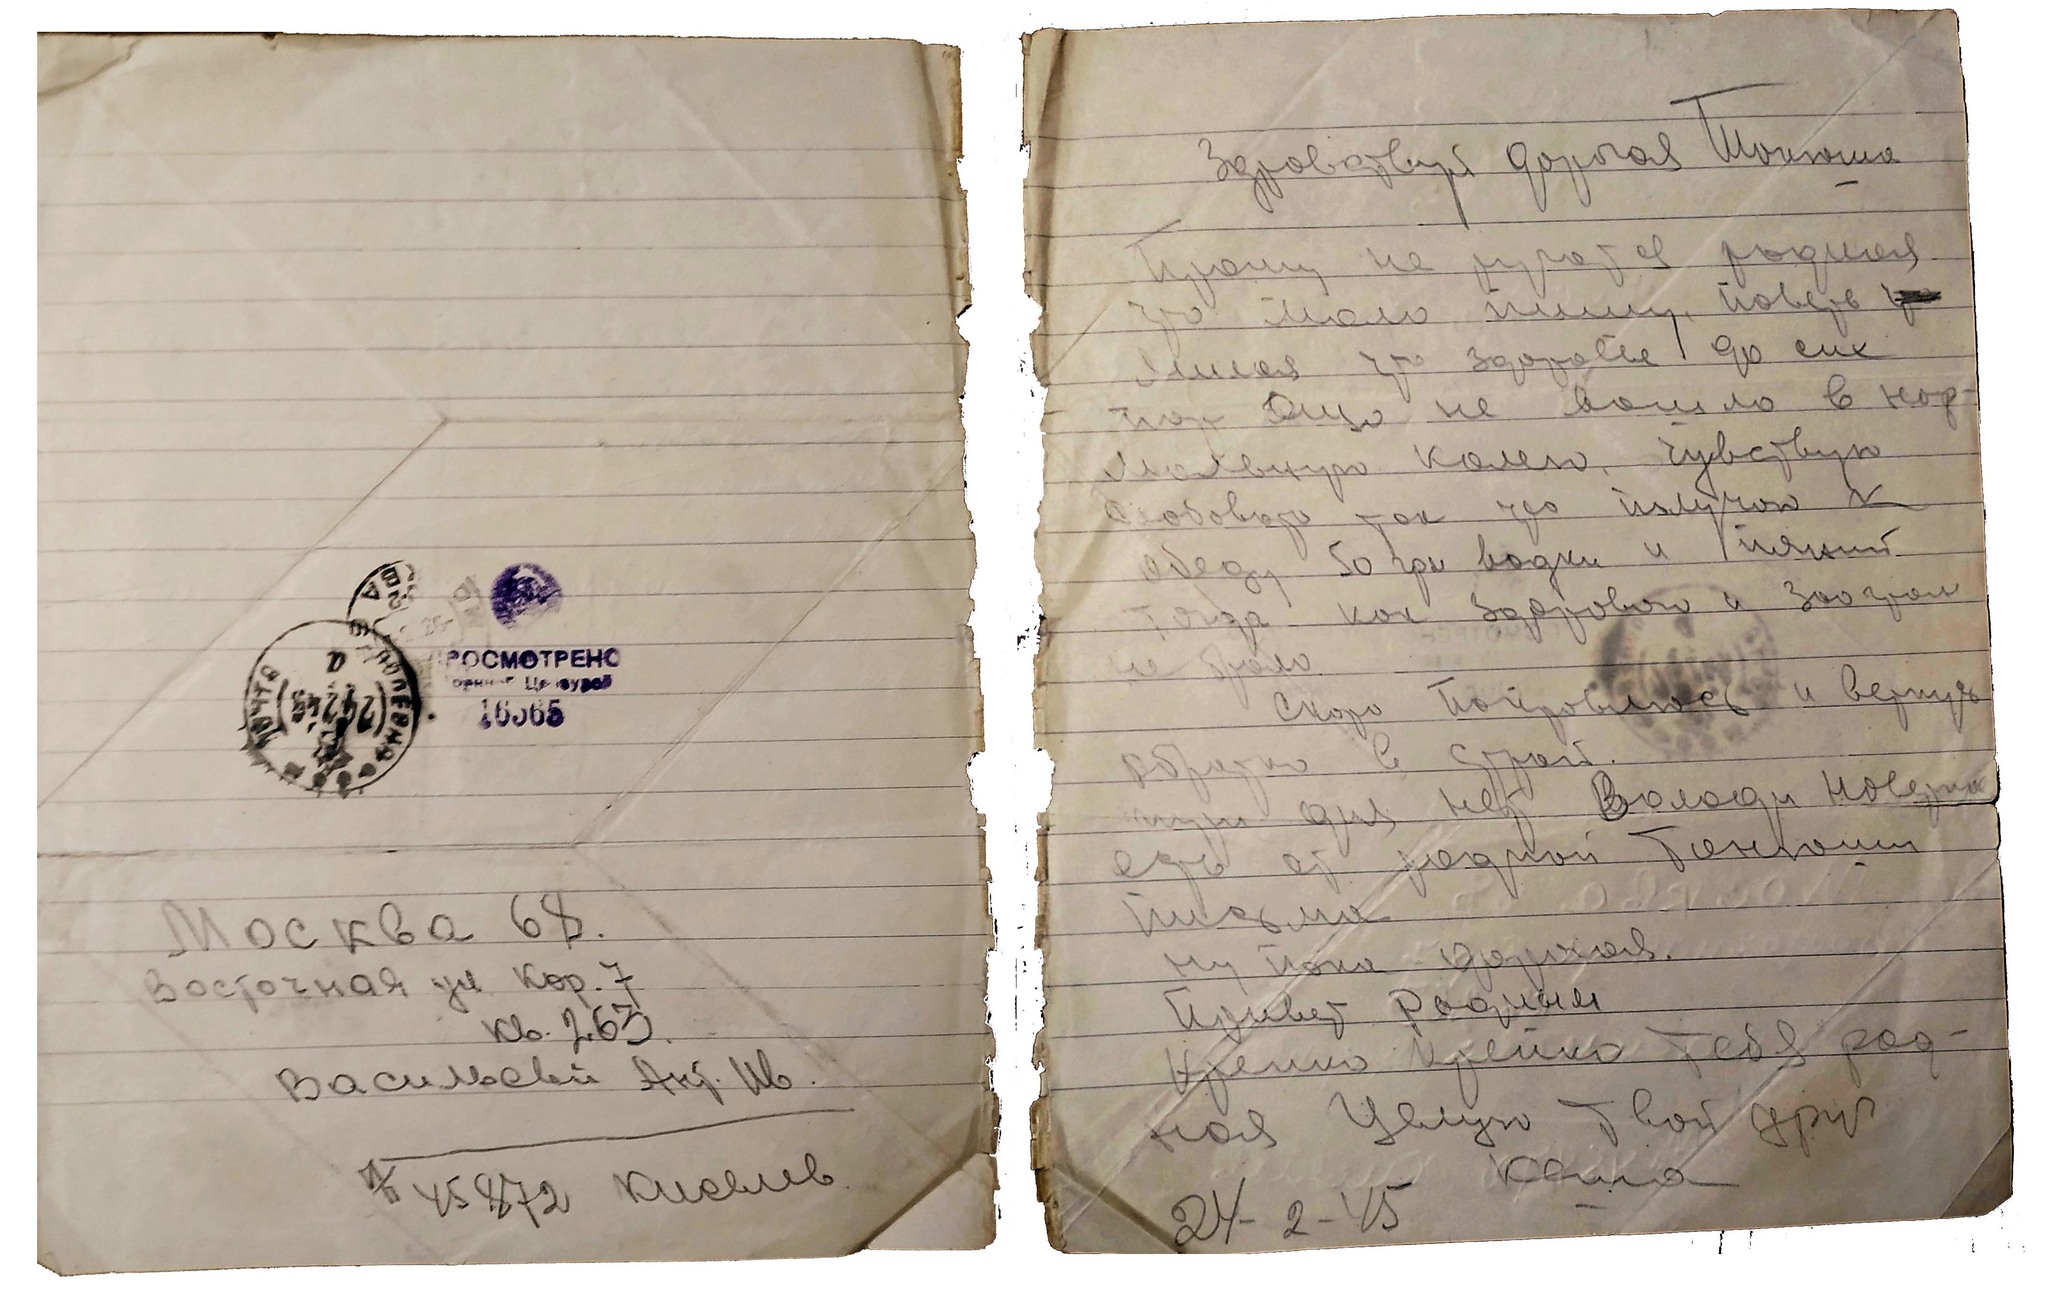 ПОЛЕВАЯ
ПОЧТА
РОСМОТРЕНО
Цензурой
Москва 68.
Восточная ул кор. 7
кв. 263.
Васильевой Ант. Ив.
п/п 45872 Киселев.
Здравствуй дорогая Тонюша
Прошу не ругатся родная
что мало пишу, поверь
милая что здоровье до сих
пор еще не вошло в нор-
мальную колею. Чувствую
так что получаю к
обеду 50 гр водки и пяний
тогда как здорового и заогром
не брало
Скоро поправлюсь и вернусь
обратно в строй.
дня нет Володи наверно
есть от родной Тонюши
письма
Ну пока дорогая.
Привет родным
Крепко крепко тебя род-
ная целую твой друг
Кеша
24-2-45